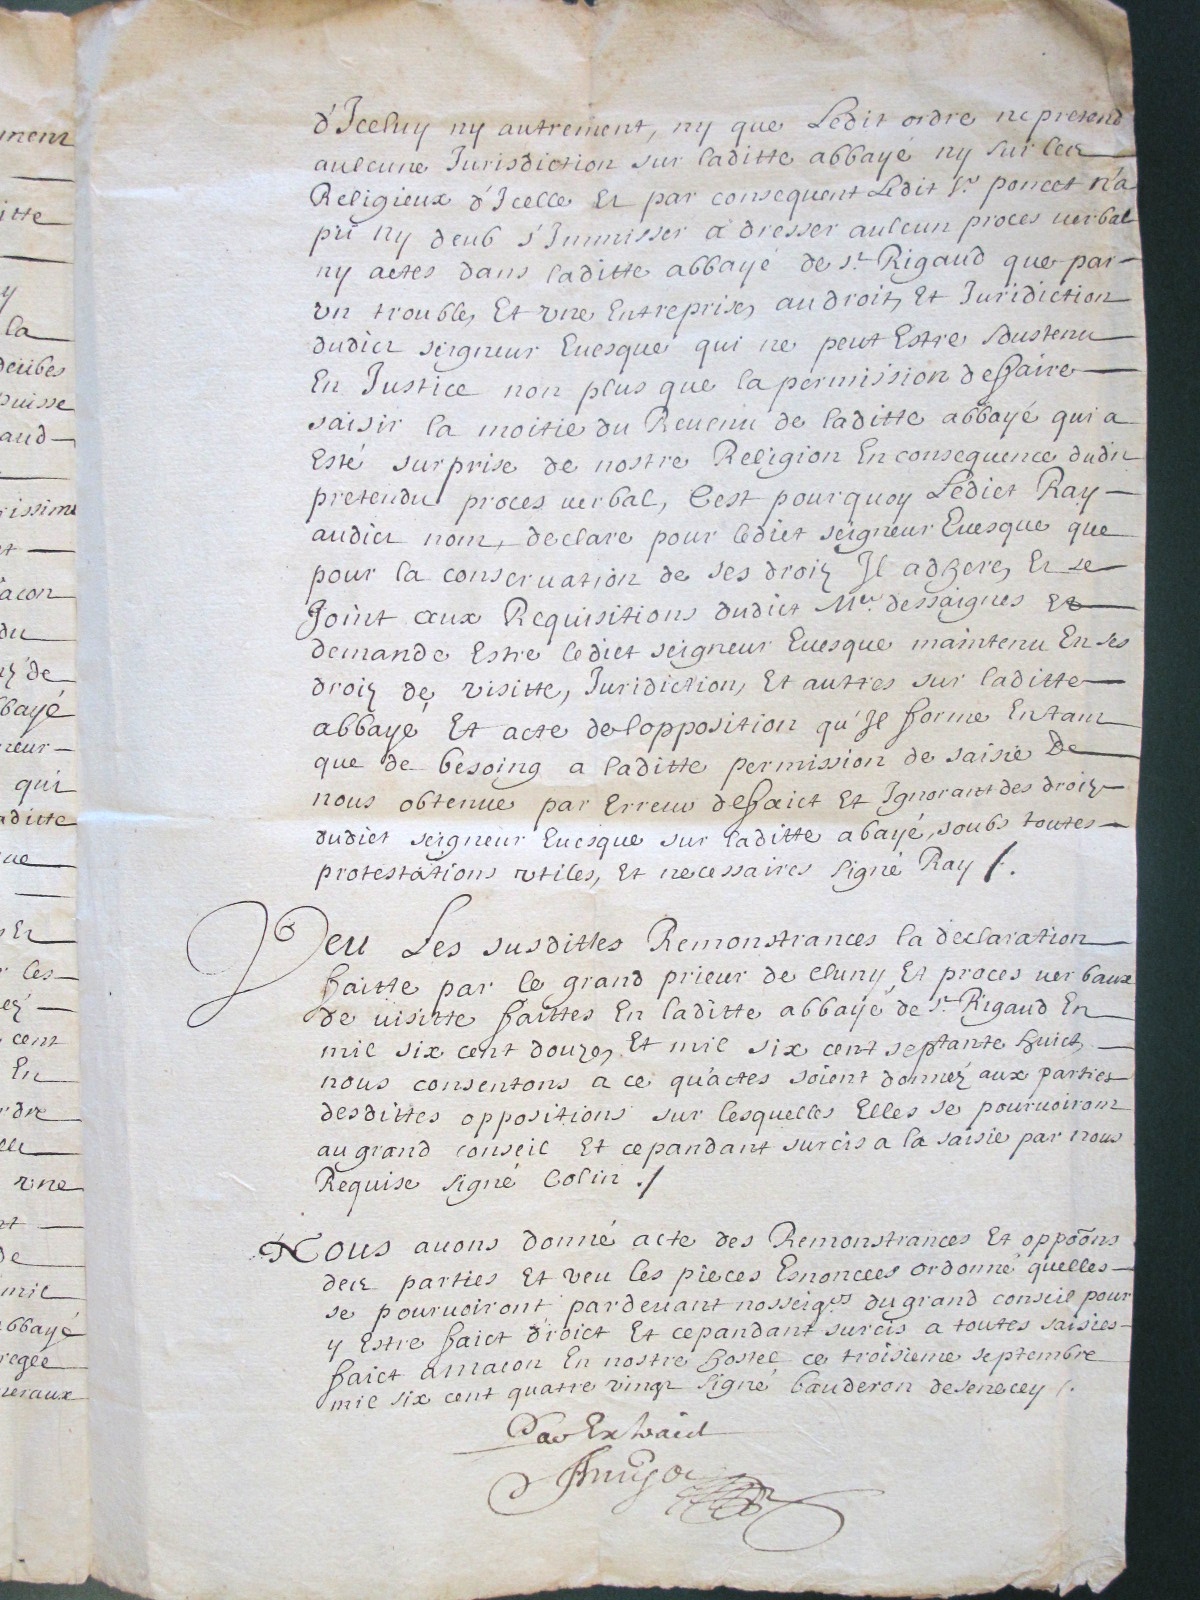 ment
itte
y
la
deubes
puisse
aud
rissime
et
acon
du
de
bbayé
neur
qui
aditte
que
Et
les
cent
En
rdre
une
de
mil
abbayé
regee
neraux
d'Iceluy ny autrement, ny que Ledit ordre ne pretend
aulcune Jurisdiction sur laditte abbayé ny sur lecs
Religieux d'Icelle Et par consequent Ledit Sr. poncet n'a
pû ny deub s'Immisser a dresser aulcun proces uerbal
ny actes dans laditte abbayé de St. Rigaud que par
vn trouble, Et vne Entreprise, au droit, Et Juridiction
dudict seigneur Euesque qui ne peut Estre soustenu
En Justice non plus que la permission de faire
saisir la moitié du Reuenu de laditte abbayé qui a
Esté surprise de nostre Religion En consequence dudit
pretendu proces uerbal, C'est pourquoy Ledict Ray
audict nom, declare pour ledict seigneur Euesque que
pour la conseruation de ses droiz Il adhere, Et se
Joint aux Requisitions dudict Mre. dessaignes Et
demande Estre ledict seigneur Euesque maintenu En ses
droiz de visitte, Juridiction, Et autres sur laditte
abbayé, Et acte de l'opposition qu'Il forme En tant
que de besoing a laditte permission de saisie De
nous obtenue par Erreur de faict Et Ignorant des droiz
dudict seigneur Euesque sur laditte abayé, soubs toutes
protestations vtiles, Et necessaires signé Ray /.
Veu Les susdittes Remonstrances la declaration
faitte par le grand prieur de cluny, Et proces uerbaux
de uisitte faittes En laditte abbayé de St. Rigaud En
mil six cent douze, Et mil six cent septante huict,
nous consentons a ce qu'actes soient donnez aux parties
desdittes oppositions sur lesquelles Elles se pouruoiront
au grand conseil Et cepandant surcis a la saisie par nous
Requise signé Colin ./
Nous auons donné acte des Remonstrances Et oppoons
decs parties Et veu les pieces Esnoncees ordonné quelles
se pouruoiront pardeuant nosseigrs du grand conseil pour
y Estre faict droict Et cepandant surcis a toutes saisies
faict a macon En nostre hostel ce troisieme septembre
mil six cent quatre vingt signé bauderon de senecey /.
Par Extraict